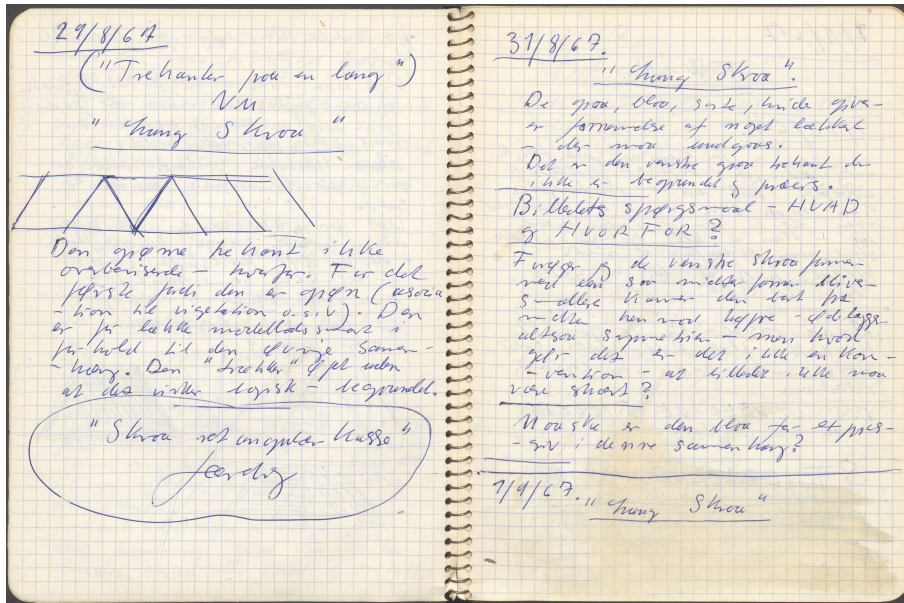 29/8/67
("Trekanter paa en lang")
NU
"Lang Skraa"
Den grønne trekant ikke
overbevisende - hvorfor. For det
første fordi den er grøn (associa
-tion til vigetation o.s.v). Den
er for lække modelladssmart i
forhold til den øvrige sammen-
-hæng. Den "trækker" øjet uden
at det virker logisk - begrundet.
"Skraa retangulær kasse"
færdig
31/8/67.
"Lang Skraa".
De graa, blaa, sorte, hvide giver
en fornemmelse af noget lækkert
- der maa undgaas.
Det er den venstre graa trekant der
ikke er begrundet og præcis.
Billedets spørgsmaal - HVAD
og HVORFOR?
Forøger jeg de venstre skraa former
med een saa midterformen bliver
smallere kommer den bort fra
midten hen mod højre - ødelægger
altsaa symmetrien - men hvad
gør det er det ikke en kon-
-vention - at billedet ikke maa
være skævt?
Maaske er den blaa for
i denne sammenhæng?
1/9/67. "Lang Skraa"